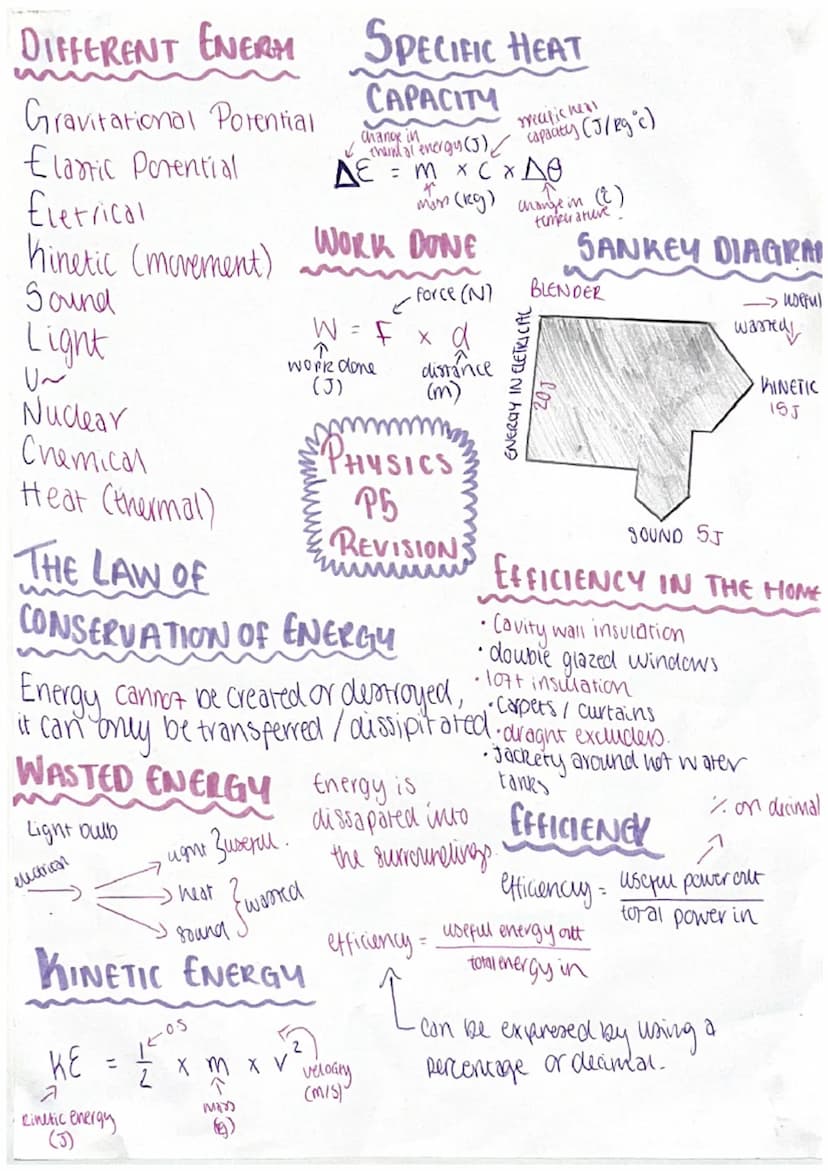 DIFFERENT ENERGY
Gravitational Potential
Elastic Potential
Eletrical
Kinetic (movement)
Sound
Light
Nuclear
Chemical
Heat (thermal)
SPECIFIC HEAT
CAPACITY
change in
thermal energy (J)
specific heat
capacity (J/kg°c)
ΔE = m × c × Δθ
mass (kg)
change in (°c)
temperature.
WORK DONE
force (N)
W = F × d
work done
(J)
distance
(m)
SANKEY DIAGRAM
BLENDER
useful
wasted
ENERGY IN ELETRICAL
20J
KINETIC
15J
SOUND 5J
PHYSICS
P5
REVISION
THE LAW OF
CONSERVATION OF ENERGY
Energy cannot be created or destroyed,
it can only be transferred / dissipitated.
EFFICIENCY IN THE HOME
• Cavity wall insulation
• double glazed windows
• loft insulation
• Carpets / curtains
• draght excluders.
• Jackety around hot water
tanks
WASTED ENERGY
Light bulb
light } useful.
heat
sound } wasted
Energy is
dissapated into
the surroundings.
EFFICIENCY
% or decimal
efficiency = useful power out
total power in
efficiency = useful energy out
total energy in
can be expressed by using a
percentage or decimal.
KINETIC ENERGY
0.5
KE = 1/2 × m × v²
kinetic energy
(J)
mass
velocity
(m/s)